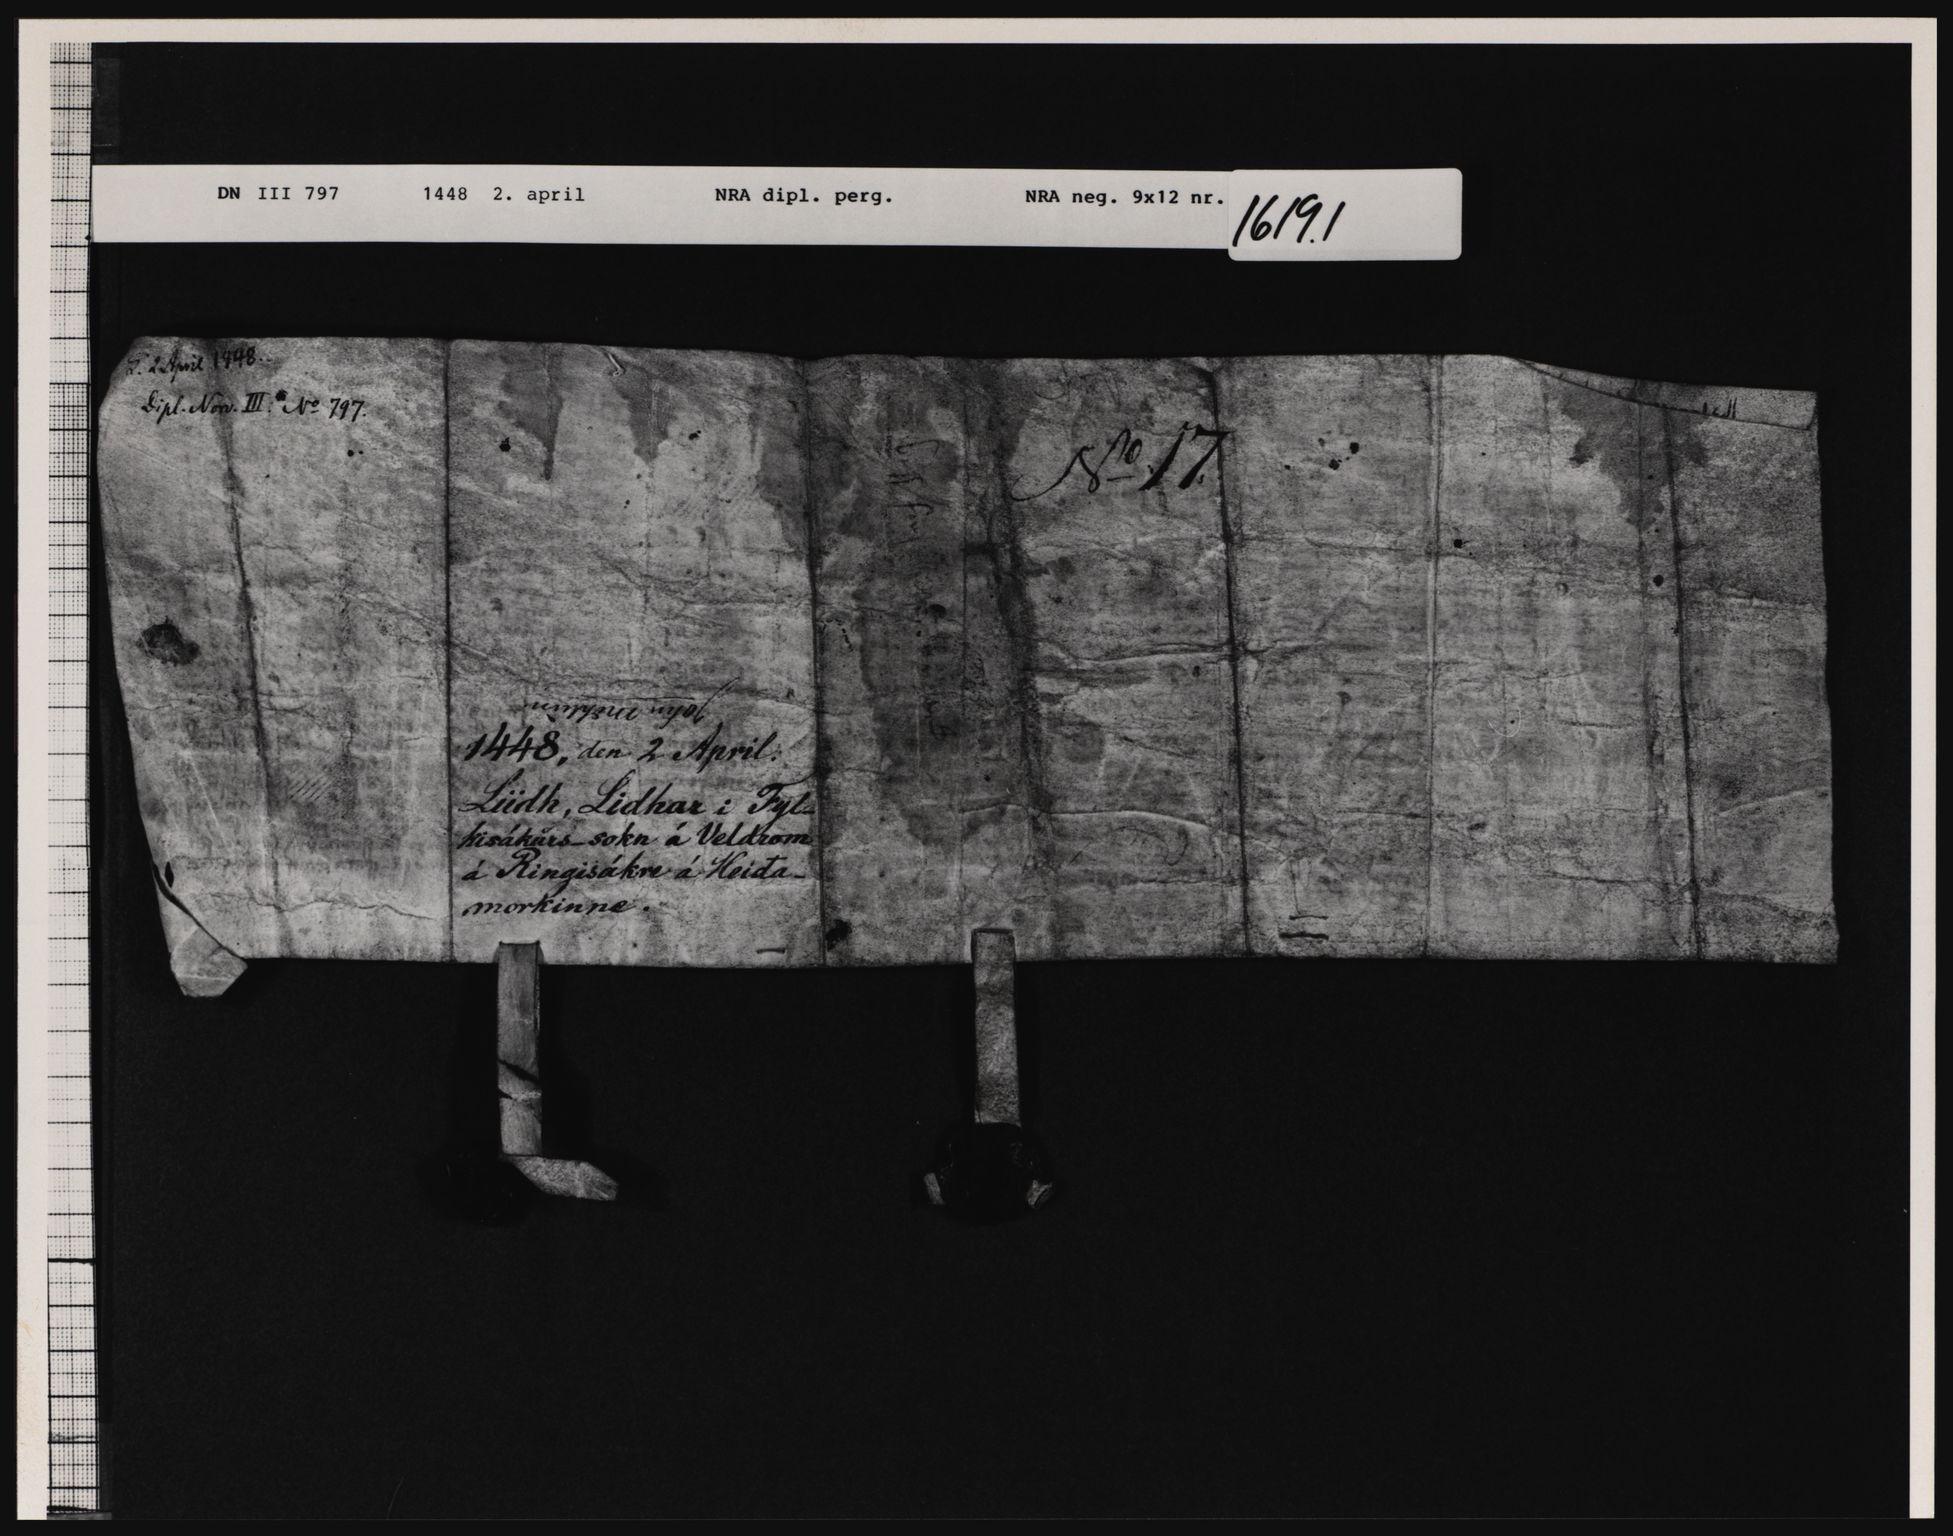 DN III 797 1448 2. april NRA dipl. perg. NRA neg. 9x12 nr. 1619.1
2. April 1448.
Dipl. Norv. III. No 797.
No 17.
John
1448, den 2 April.
Lüdh, Lidhar i Fyl-
kisákurs-sokn á Veldrom
á Ringisákre á Heiđa-
morkinne.